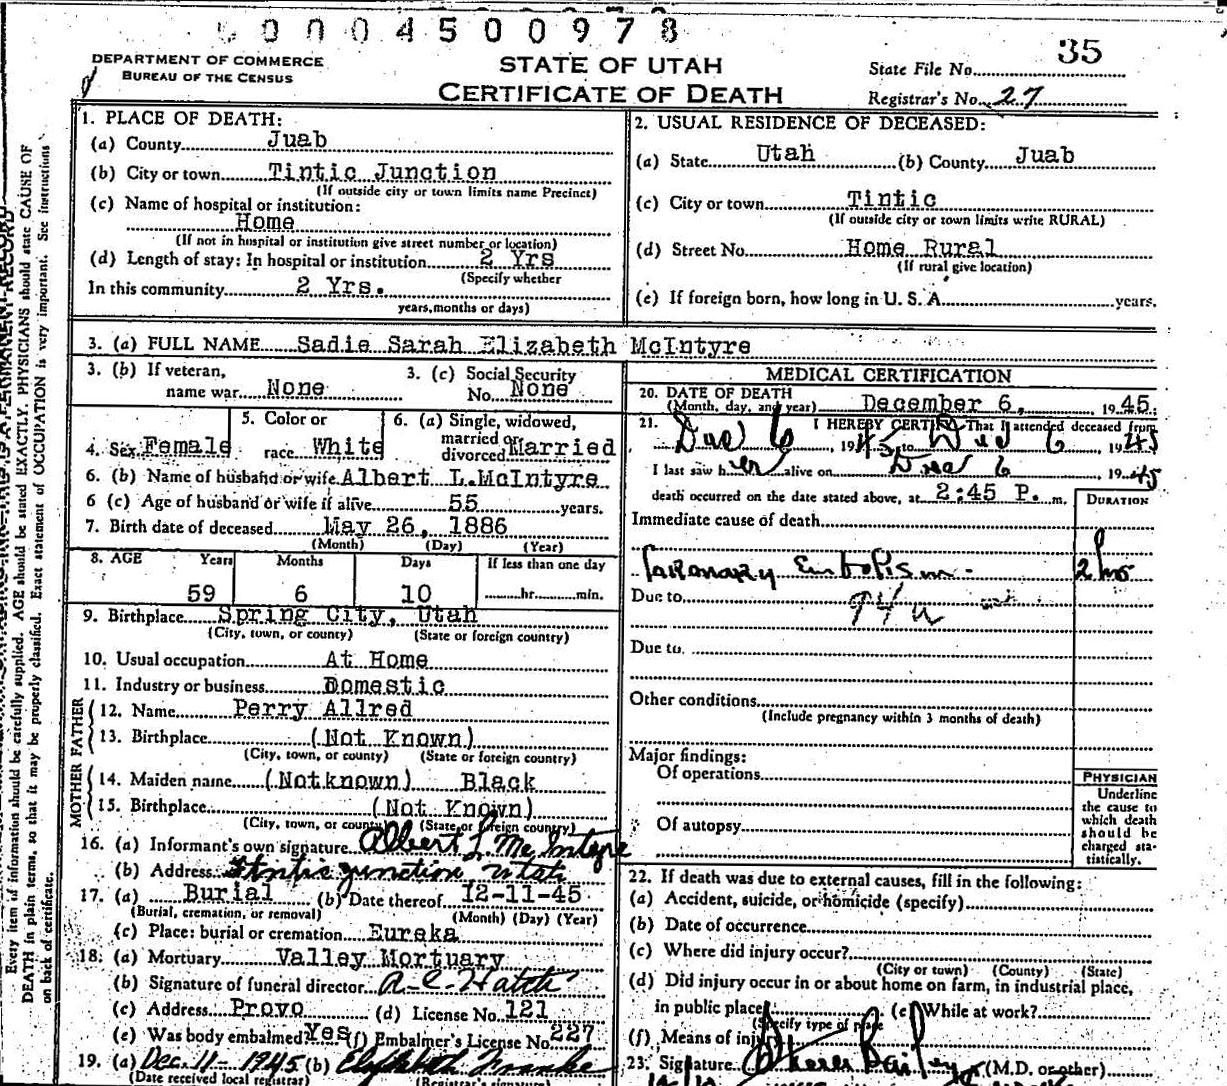 0004500978
DEPARTMENT OF COMMERCE
BUREAU OF THE CENSUS
STATE OF UTAH
CERTIFICATE OF DEATH
35
State File No.
Registrar's No. 27
Every item of information should be carefully supplied. AGE should be stated EXACTLY. PHYSICIANS should state CAUSE OF
DEATH in plain terms, so that it may be properly classified. Exact statement of OCCUPATION is very important. See instructions
on back of certificate.
1. PLACE OF DEATH:
(a) County Juab
(b) City or town Tintic Junction
(If outside city or town limits name Precinct)
(c) Name of hospital or institution:
Home
(If not in hospital or institution give street number or location)
(d) Length of stay: In hospital or institution 2 Yrs
(Specify whether
In this community 2 Yrs.
years, months or days)
2. USUAL RESIDENCE OF DECEASED:
(a) State Utah (b) County Juab
(c) City or town Tintic
(If outside city or town limits write RURAL)
(d) Street No. Home Rural
(If rural give location)
(e) If foreign born, how long in U. S. A. years.
3. (a) FULL NAME Sadie Sarah Elizabeth McIntyre
3. (b) If veteran,
name war None
3. (c) Social Security
No. None
4. Sex Female
5. Color or
race White
6. (a) Single, widowed,
married or
divorced Married
6. (b) Name of husband or wife Albert L. McIntyre
6 (c) Age of husband or wife if alive 55 years.
7. Birth date of deceased May 26, 1886
(Month) (Day) (Year)
8. AGE Years Months Days If less than one day
59 6 10 hr. min.
9. Birthplace Spring City, Utah
(City, town, or county) (State or foreign country)
10. Usual occupation At Home
11. Industry or business Domestic
FATHER
12. Name Perry Allred
13. Birthplace (Not Known)
(City, town, or county) (State or foreign country)
MOTHER
14. Maiden name (Notknown) Black
15. Birthplace (Not Known)
(City, town, or county) (State or foreign country)
16. (a) Informant's own signature Albert L. McIntyre
(b) Address Tintic junction utah
17. (a) Burial (b) Date thereof 12-11-45
(Burial, cremation, or removal) (Month) (Day) (Year)
(c) Place: burial or cremation Eureka
18. (a) Mortuary Valley Mortuary
(b) Signature of funeral director
(c) Address Provo (d) License No. 121
(e) Was body embalmed? Yes (f) Embalmer's License No. 227
19. (a) Dec. 11-1945 (b) Elizabeth
(Date received local registrar) (Registrar's signature)
MEDICAL CERTIFICATION
20. DATE OF DEATH
(Month, day, and year) December 6, 1945.
21. I HEREBY CERTIFY That I attended deceased from
Dec 6, 1945, to Dec 6 1945
I last saw her alive on Dec 6 1945
death occurred on the date stated above, at 2:45 P. m.
DURATION
Immediate cause of death
Coronary Embolism 2 hrs
Due to
Due to.
Other conditions
(Include pregnancy within 3 months of death)
Major findings:
Of operations
Of autopsy
PHYSICIAN
Underline
the cause to
which death
should be
charged sta-
tistically.
22. If death was due to external causes, fill in the following:
(a) Accident, suicide, or homicide (specify)
(b) Date of occurrence
(c) Where did injury occur?
(City or town) (County) (State)
(d) Did injury occur in or about home on farm, in industrial place,
in public place (e) While at work?
(Specify type of place
(f) Means of inj
23. Signature Bailey (M.D. or other)